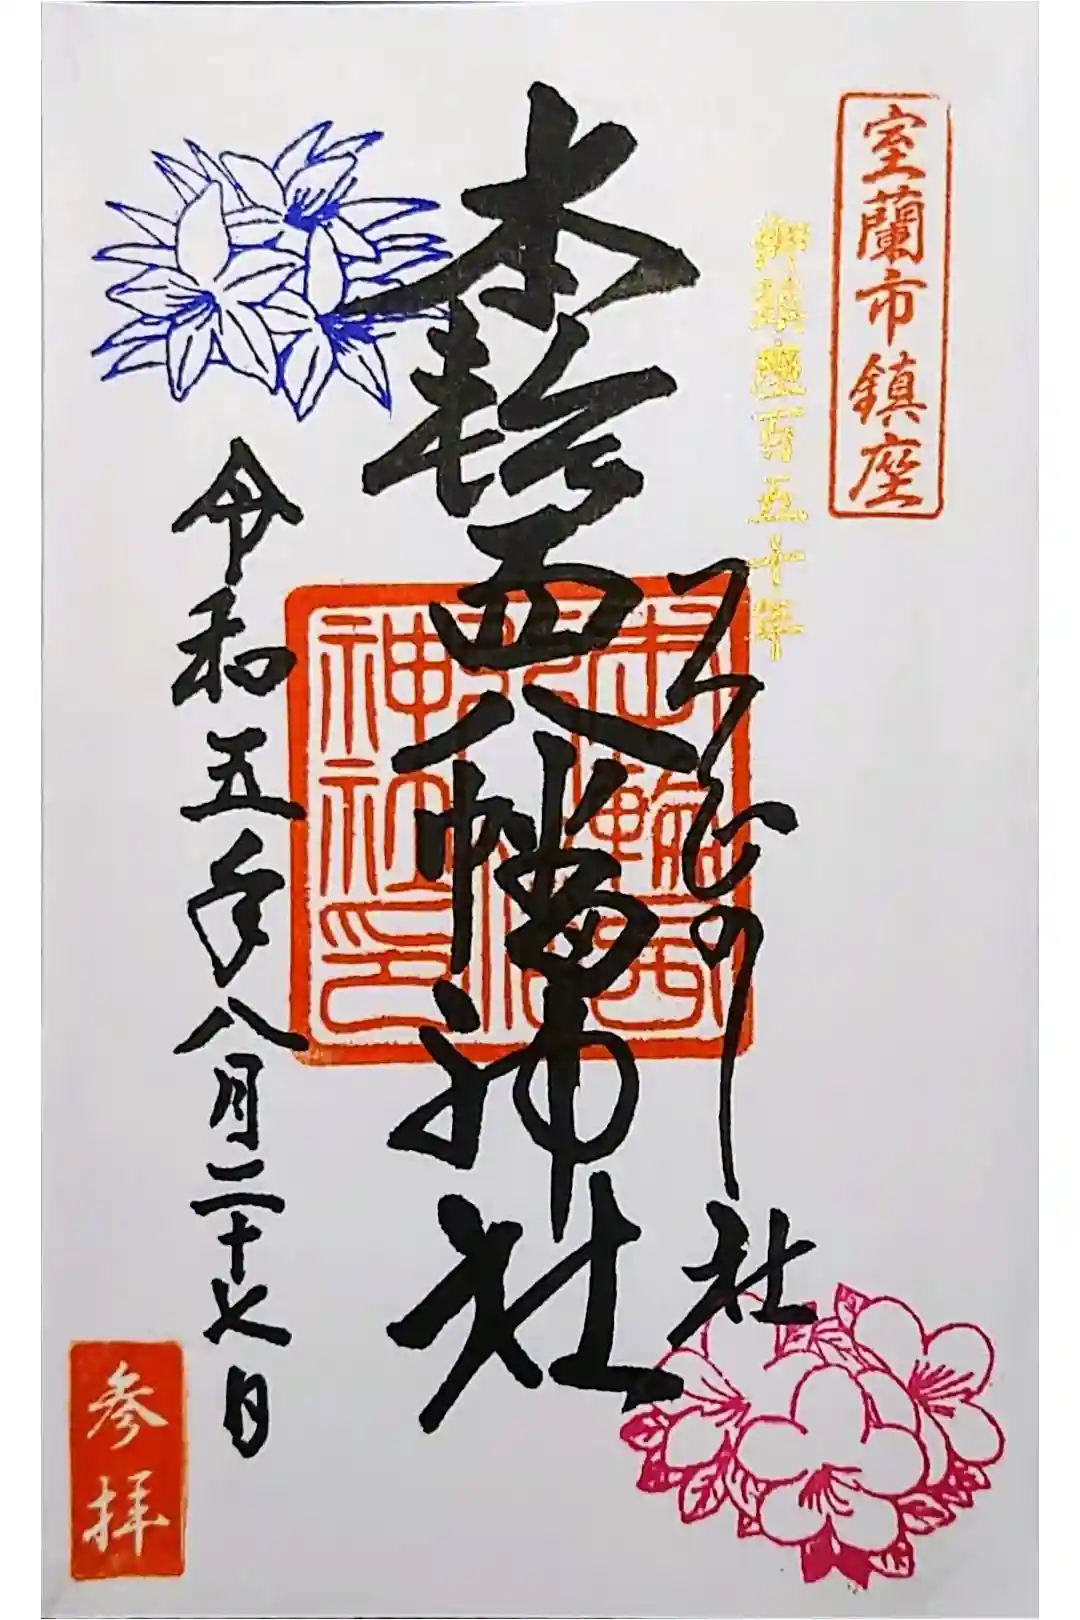 室蘭市鎮座
御鎮座百五十年
つつじの社
本輪西八幡神社
本輪西八幡神社印
令和五年八月二十七日
参拝